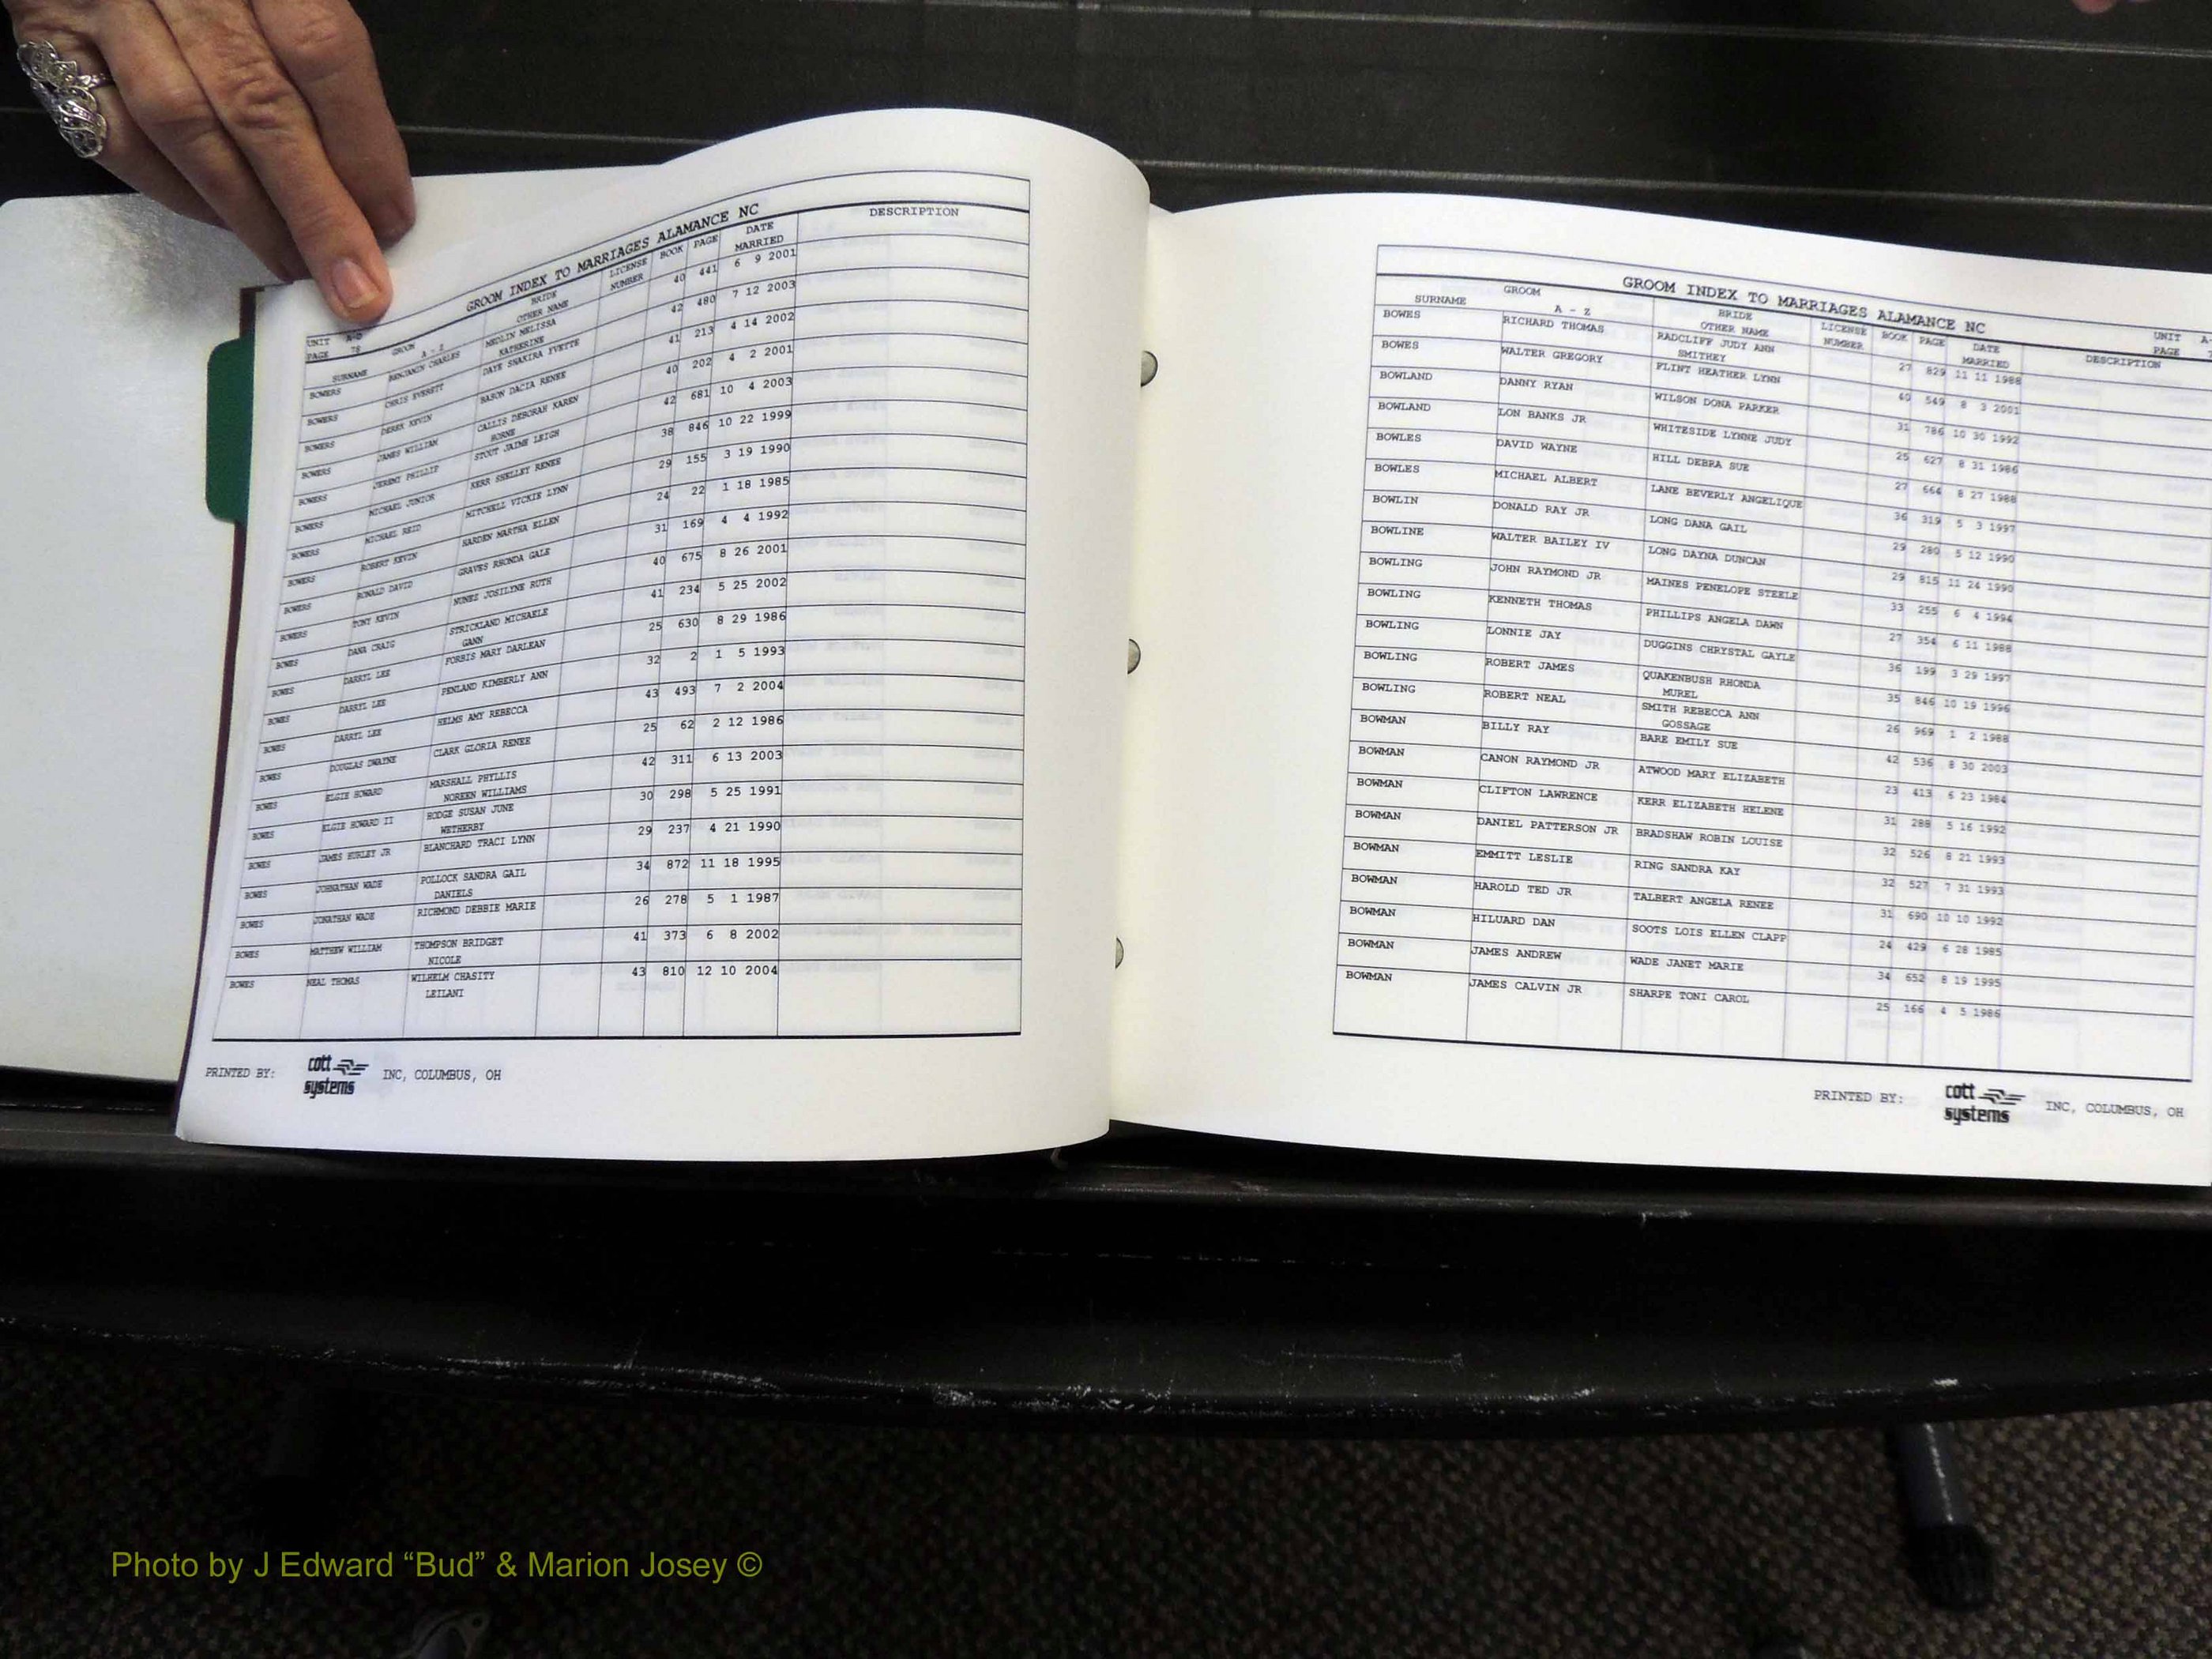 UNIT A-D
PAGE 78
GROOM INDEX TO MARRIAGES ALAMANCE NC
SURNAME GROOM A - Z BRIDE OTHER NAME LICENSE NUMBER BOOK PAGE DATE MARRIED DESCRIPTION
BOWERS BENJAMIN CHARLES MEDLIN MELISSA 40 441 6 9 2001
KATHERINE
BOWERS CHRIS EVERETT DAYE SHAKIRA YVETTE 42 480 7 12 2003
BOWERS DEREK KEVIN BASON DACIA RENEE 41 213 4 14 2002
BOWERS JAMES WILLIAM CALLIS DEBORAH KAREN 40 202 4 2 2001
HORNE
BOWERS JEREMY PHILLIP STOUT JAIME LEIGH 42 681 10 4 2003
BOWERS MICHAEL JUNIOR KERR SHELLEY RENEE 38 846 10 22 1999
BOWERS MICHAEL REID MITCHELL VICKIE LYNN 29 155 3 19 1990
BOWERS ROBERT KEVIN HARDEN MARTHA ELLEN 24 22 1 18 1985
BOWERS RONALD DAVID GRAVES RHONDA GALE 31 169 4 4 1992
BOWERS TONY KEVIN NUNES JOSILYNE RUTH 40 675 8 26 2001
BOWES DANA CRAIG STRICKLAND MICHAELE 41 234 5 25 2002
GANN
BOWES DARRYL LEE FORBIS MARY DARLEAN 25 630 8 29 1986
BOWES DARRYL LEE PENLAND KIMBERLY ANN 32 2 1 5 1993
BOWES DARRYL LEE HELMS AMY REBECCA 43 493 7 2 2004
BOWES DOUGLAS DWAYNE CLARK GLORIA RENEE 25 62 2 12 1986
BOWES ELGIE HOWARD MARSHALL PHYLLIS 42 311 6 13 2003
NOREEN WILLIAMS
BOWES ELGIE HOWARD II HODGE SUSAN JUNE 30 298 5 25 1991
WETHERBY
BOWES JAMES HURLEY JR BLANCHARD TRACI LYNN 29 237 4 21 1990
BOWES JOHNATHAN WADE POLLOCK SANDRA GAIL 34 872 11 18 1995
DANIELS
BOWES JONATHAN WADE RICHMOND DEBBIE MARIE 26 278 5 1 1987
BOWES MATTHEW WILLIAM THOMPSON BRIDGET 41 373 6 8 2002
NICOLE
BOWES NEAL THOMAS WILHELM CHASITY 43 810 12 10 2004
LEILANI
PRINTED BY: cott systems INC, COLUMBUS, OH
GROOM INDEX TO MARRIAGES ALAMANCE NC
UNIT A-
PAGE
SURNAME GROOM A - Z BRIDE OTHER NAME LICENSE NUMBER BOOK PAGE DATE MARRIED DESCRIPTION
BOWES RICHARD THOMAS RADCLIFF JUDY ANN 27 829 11 11 1988
SMITHEY
BOWES WALTER GREGORY FLINT HEATHER LYNN 40 549 8 3 2001
BOWLAND DANNY RYAN WILSON DONA PARKER 31 786 10 30 1992
BOWLAND LON BANKS JR WHITESIDE LYNNE JUDY 25 627 8 31 1986
BOWLES DAVID WAYNE HILL DEBRA SUE 27 664 8 27 1988
BOWLES MICHAEL ALBERT LANE BEVERLY ANGELIQUE 36 319 5 3 1997
BOWLIN DONALD RAY JR LONG DANA GAIL 29 280 5 12 1990
BOWLINE WALTER BAILEY IV LONG DAYNA DUNCAN 29 815 11 24 1990
BOWLING JOHN RAYMOND JR MAINES PENELOPE STEELE 33 255 6 4 1994
BOWLING KENNETH THOMAS PHILLIPS ANGELA DAWN 27 354 6 11 1988
BOWLING LONNIE JAY DUGGINS CHRYSTAL GAYLE 36 199 3 29 1997
BOWLING ROBERT JAMES QUAKENBUSH RHONDA 35 846 10 19 1996
MUREL
BOWLING ROBERT NEAL SMITH REBECCA ANN 26 969 1 2 1988
GOSSAGE
BOWMAN BILLY RAY BARE EMILY SUE 42 536 8 30 2003
BOWMAN CANON RAYMOND JR ATWOOD MARY ELIZABETH 23 413 6 23 1984
BOWMAN CLIFTON LAWRENCE KERR ELIZABETH HELENE 31 288 5 16 1992
BOWMAN DANIEL PATTERSON JR BRADSHAW ROBIN LOUISE 32 526 8 21 1993
BOWMAN EMMITT LESLIE RING SANDRA KAY 32 527 7 31 1993
BOWMAN HAROLD TED JR TALBERT ANGELA RENEE 31 690 10 10 1992
BOWMAN HILUARD DAN SOOTS LOIS ELLEN CLAPP 24 429 6 28 1985
BOWMAN JAMES ANDREW WADE JANET MARIE 34 652 8 19 1995
BOWMAN JAMES CALVIN JR SHARPE TONI CAROL 25 166 4 5 1986
PRINTED BY: cott systems INC, COLUMBUS, OH
Photo by J Edward “Bud” & Marion Josey ©